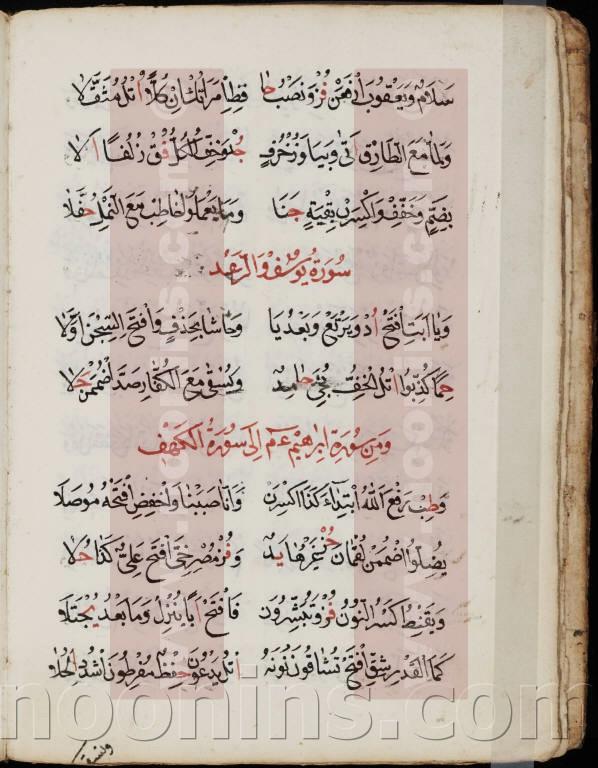 سَلَامٌ وَيَعْقُوبَ ارْفَعَنْ فُزْ وَنَصْبُ حَا فِظٍ امْرَاَتُكْ اِنْ كُلًّا اتْلُ مُثَقَّلَا
وَلَمَّا مَعَ الطَّارِقْ اَتَى وَبِيَا وَزُخْرُفٍ جُدْ وَخِفُّ الْكُلِّ فُقْ زُلْفًا اَلَا
بِضَمٍّ وَخَفِّفْ وَاكْسِرَنْ بِقْيَةٍ جَنَا وَمَا يَعْمَلُو خَاطِبْ مَعَ النَّمْلِ حُفَّلَا
سُورَةُ يُوسُفْ وَالرَّعْد
وَيَا اَبَتِ افْتَحْ اُدْ وَيَرْتَعْ وَبَعْدُ يَا وَحَاشَا بِحَذْفٍ وَافْتَحِ السِّجْنُ اَوَّلَا
حِمًا كُذِّبُوا اتْلُ الْخِفُّ نُجِّيَ حَامِدٌ وَيُسْقَى مَعَ الْكُفَّارِ صَدَّ اضْمُمَنْ حَلَا
وَمِنْ سُورَةِ اِبْرٰهِيْمَ ع م اِلَى سُورَةِ الْكَهْفِ
وَطِبْ رَفْعَ اللّٰهِ ابْتِدَاءً كَذَا اكْسِرَنْ وَاَنَّا صَبَبْنَا وَاخْفِضِ افْتَحْهُ مُوصَلَا
يُضِلُّوا اضْمُمَنْ لُقْمَانَ حُزْ غَيْرُهَا يَدٌ وَفُزْ مُصْرِخِيَّ افْتَحْ عَلِيٌّ كَذَا حُلَا
وَيَقْنِطُ كَسْرُ النُّونِ فُزْ وَتُبَشِّرُونَ فَافْتَحْ اَبًا يُنْزِلُ وَمَا بَعْدُ يُجْتَلَا
كَمَا الْقَدْرِ شِقِّ افْتَحْ تُشَاقُّونَ نُونَهُ اتْلُ يَدْعُونَ حِفْظٌ مُفْرِطُونَ اشْدُدِ الْعُلَا
noonins.com